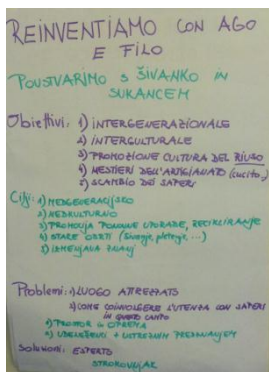 REINVENTIAMO CON AGO
E FILO
POUSTVARIMO S ŠIVANKO IN
SUKANCEM
Obiettivi: 1) INTERGENERAZIONALE
2) INTERCULTURALE
3) PROMOZIONE CULTURA DEL RIUSO
4) MESTIERI DELL'ARTIGIANATO (cucito..)
5) SCAMBIO DEI SAPERI
Cilji: 1) MEDGENERACIJSKO
2) MEDKULTURNO
3) PROMOCIJA PONOVNE UPORABE, RECIKLIRANJE
4) STARE OBRTI (šivanje, pletenje, ...)
5) IZMENJAVA ZNANJ
Problemi: 1) LUOGO ATTREZZATO
2) COME COINVOLGERE L'UTENZA CON SAPERI
IN QUESTO CAMPO
1) PROSTOR IN OPREMA
2) UDELEŽENCI Z USTREZNIM PREDZNANJEM
Soluzioni: ESPERTO
STROKOVNJAK